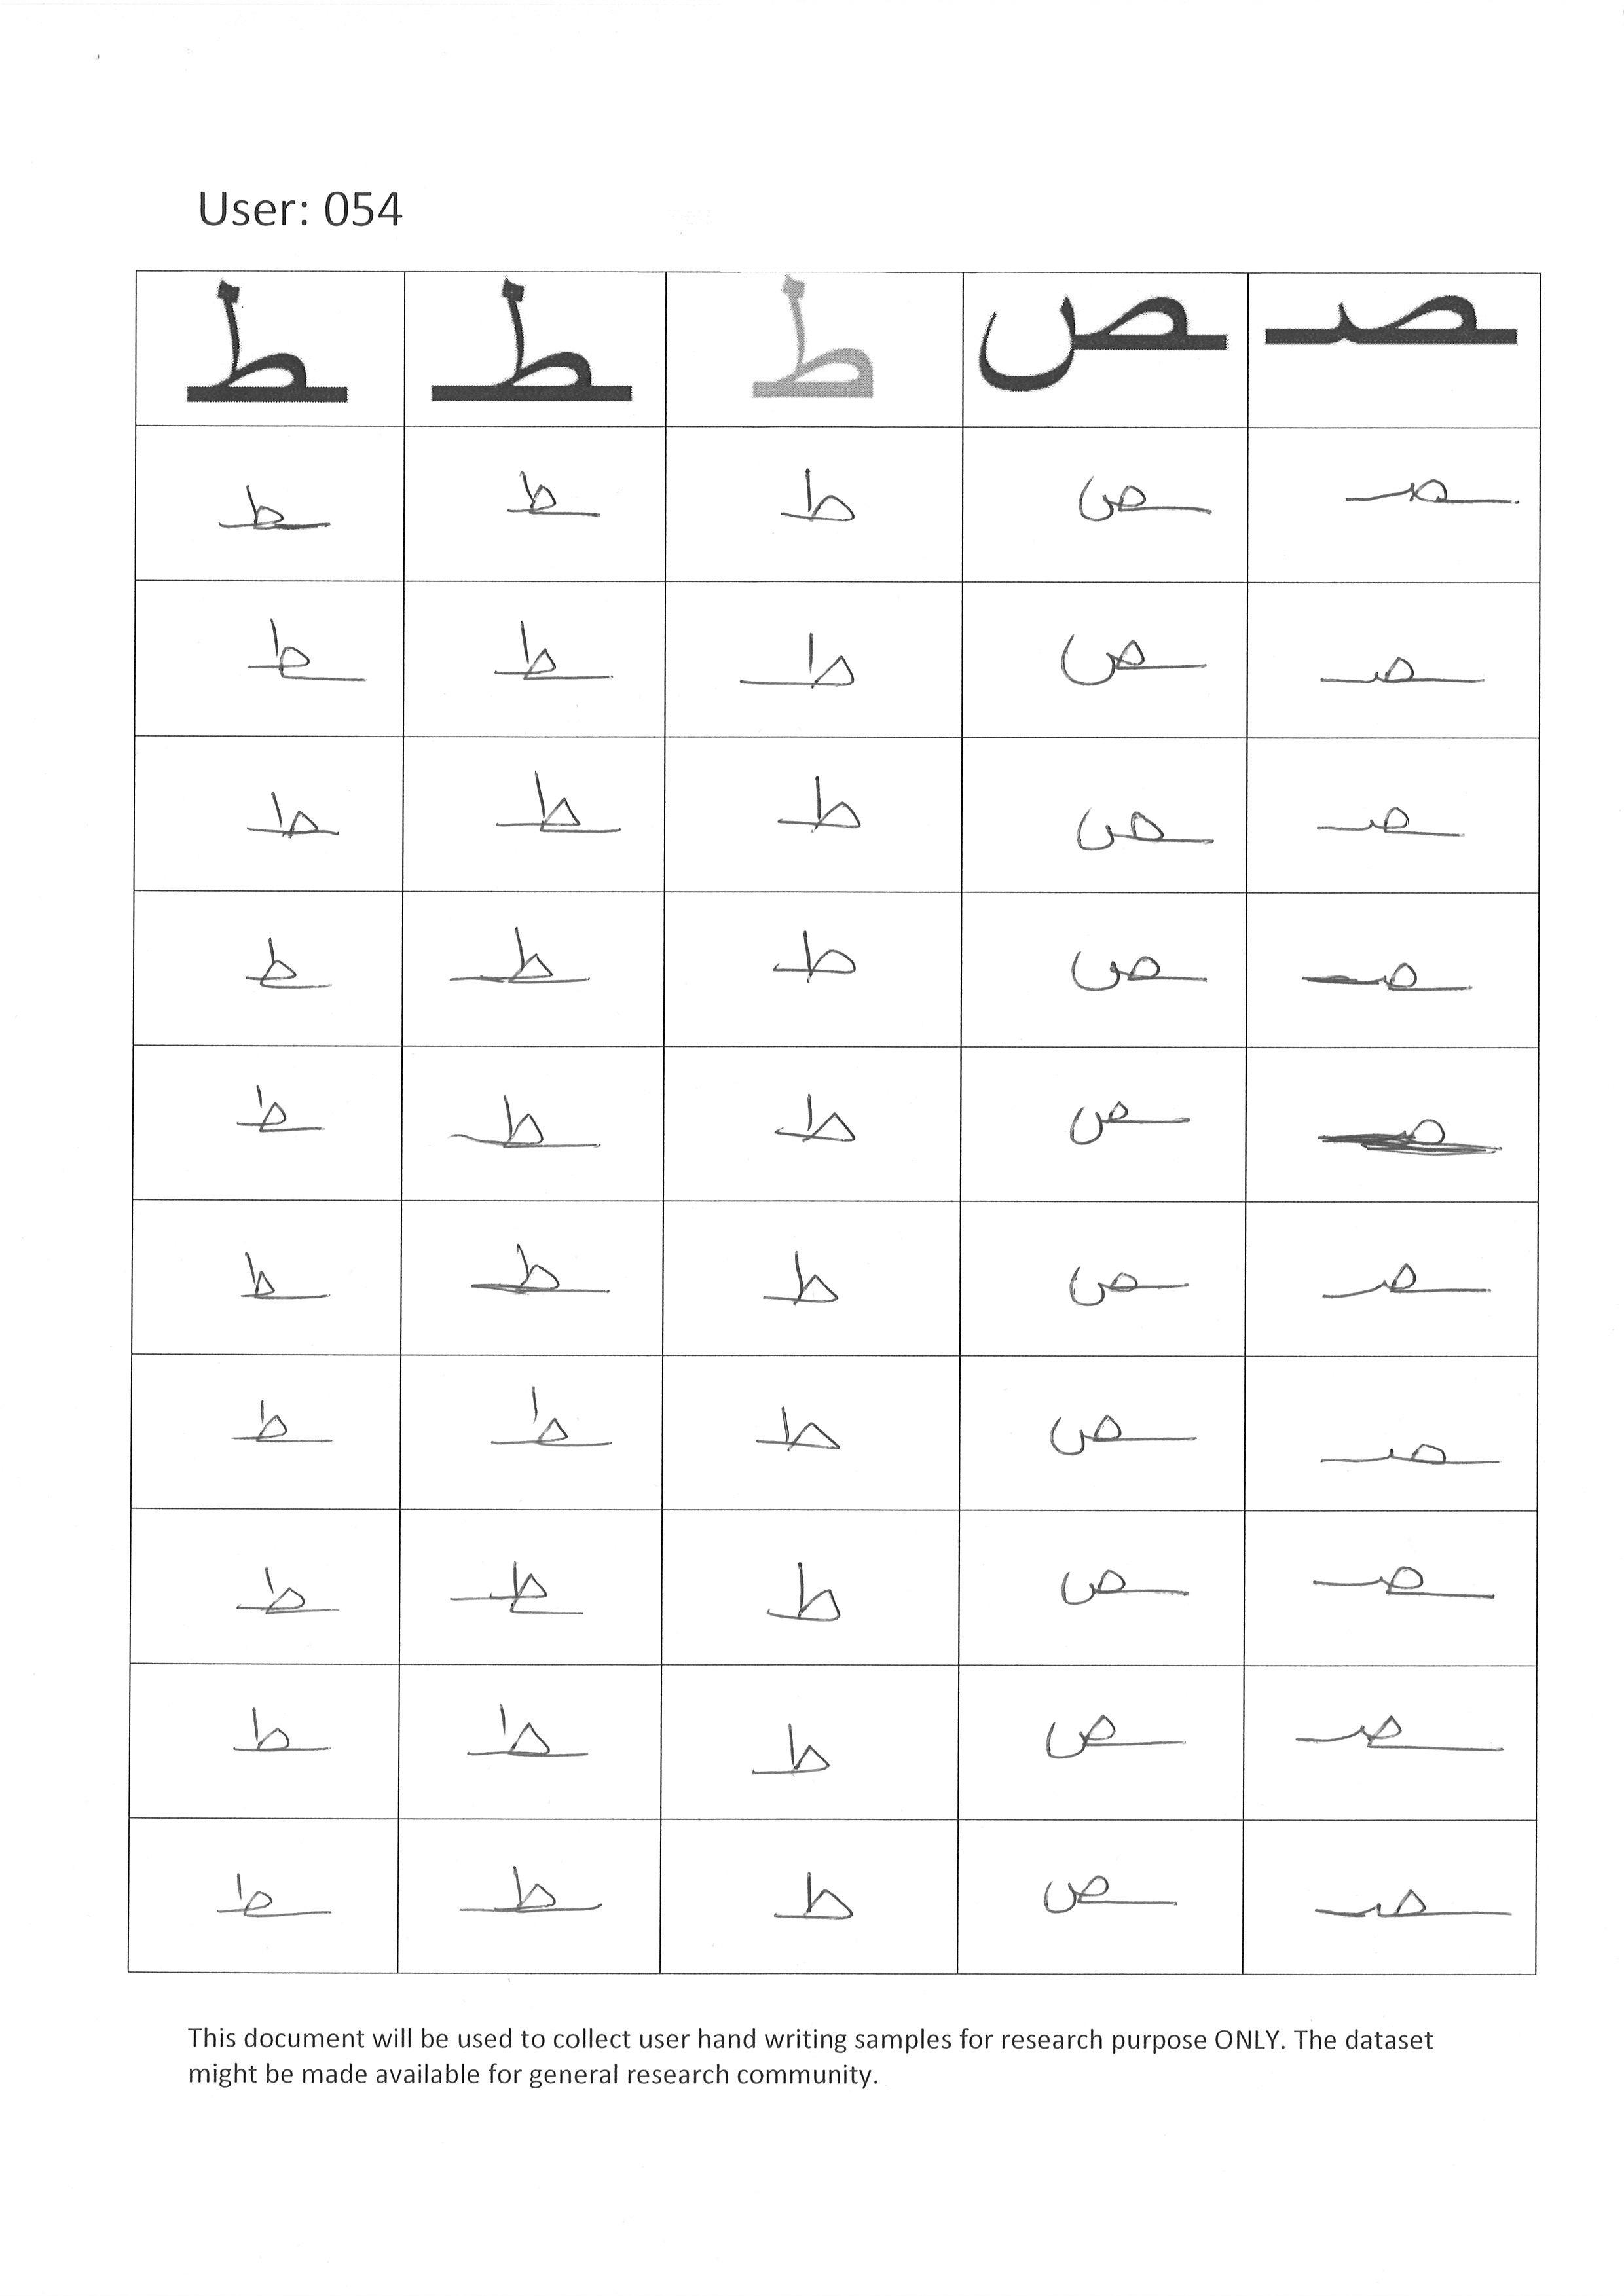 User: 054
ـصـ ـص ط ـطـ ـط
ـصـ ـص ط ـطـ ـط
ـصـ ـص ط ـطـ ـط
ـصـ ـص ط ـطـ ـط
ـصـ ـص ط ـطـ ـط
ـصـ ـص ط ـطـ ـط
ـصـ ـص ط ـطـ ـط
ـصـ ـص ط ـطـ ـط
ـصـ ـص ط ـطـ ـط
ـصـ ـص ط ـطـ ـط
ـصـ ـص ط ـطـ ـط
This document will be used to collect user hand writing samples for research purpose ONLY. The dataset
might be made available for general research community.